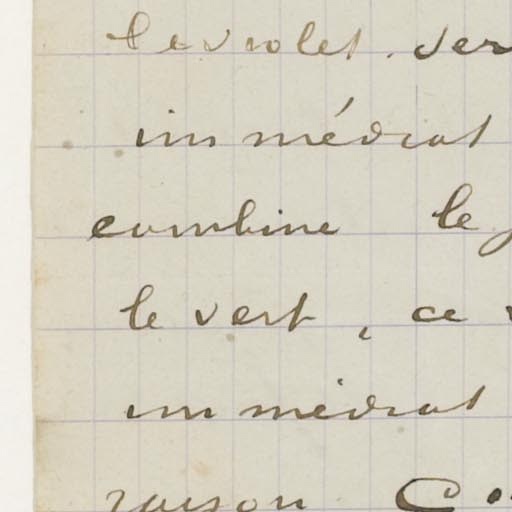 le violet. ser
immédiat
combine le j
le vert, ce v
immédiat
raison Co